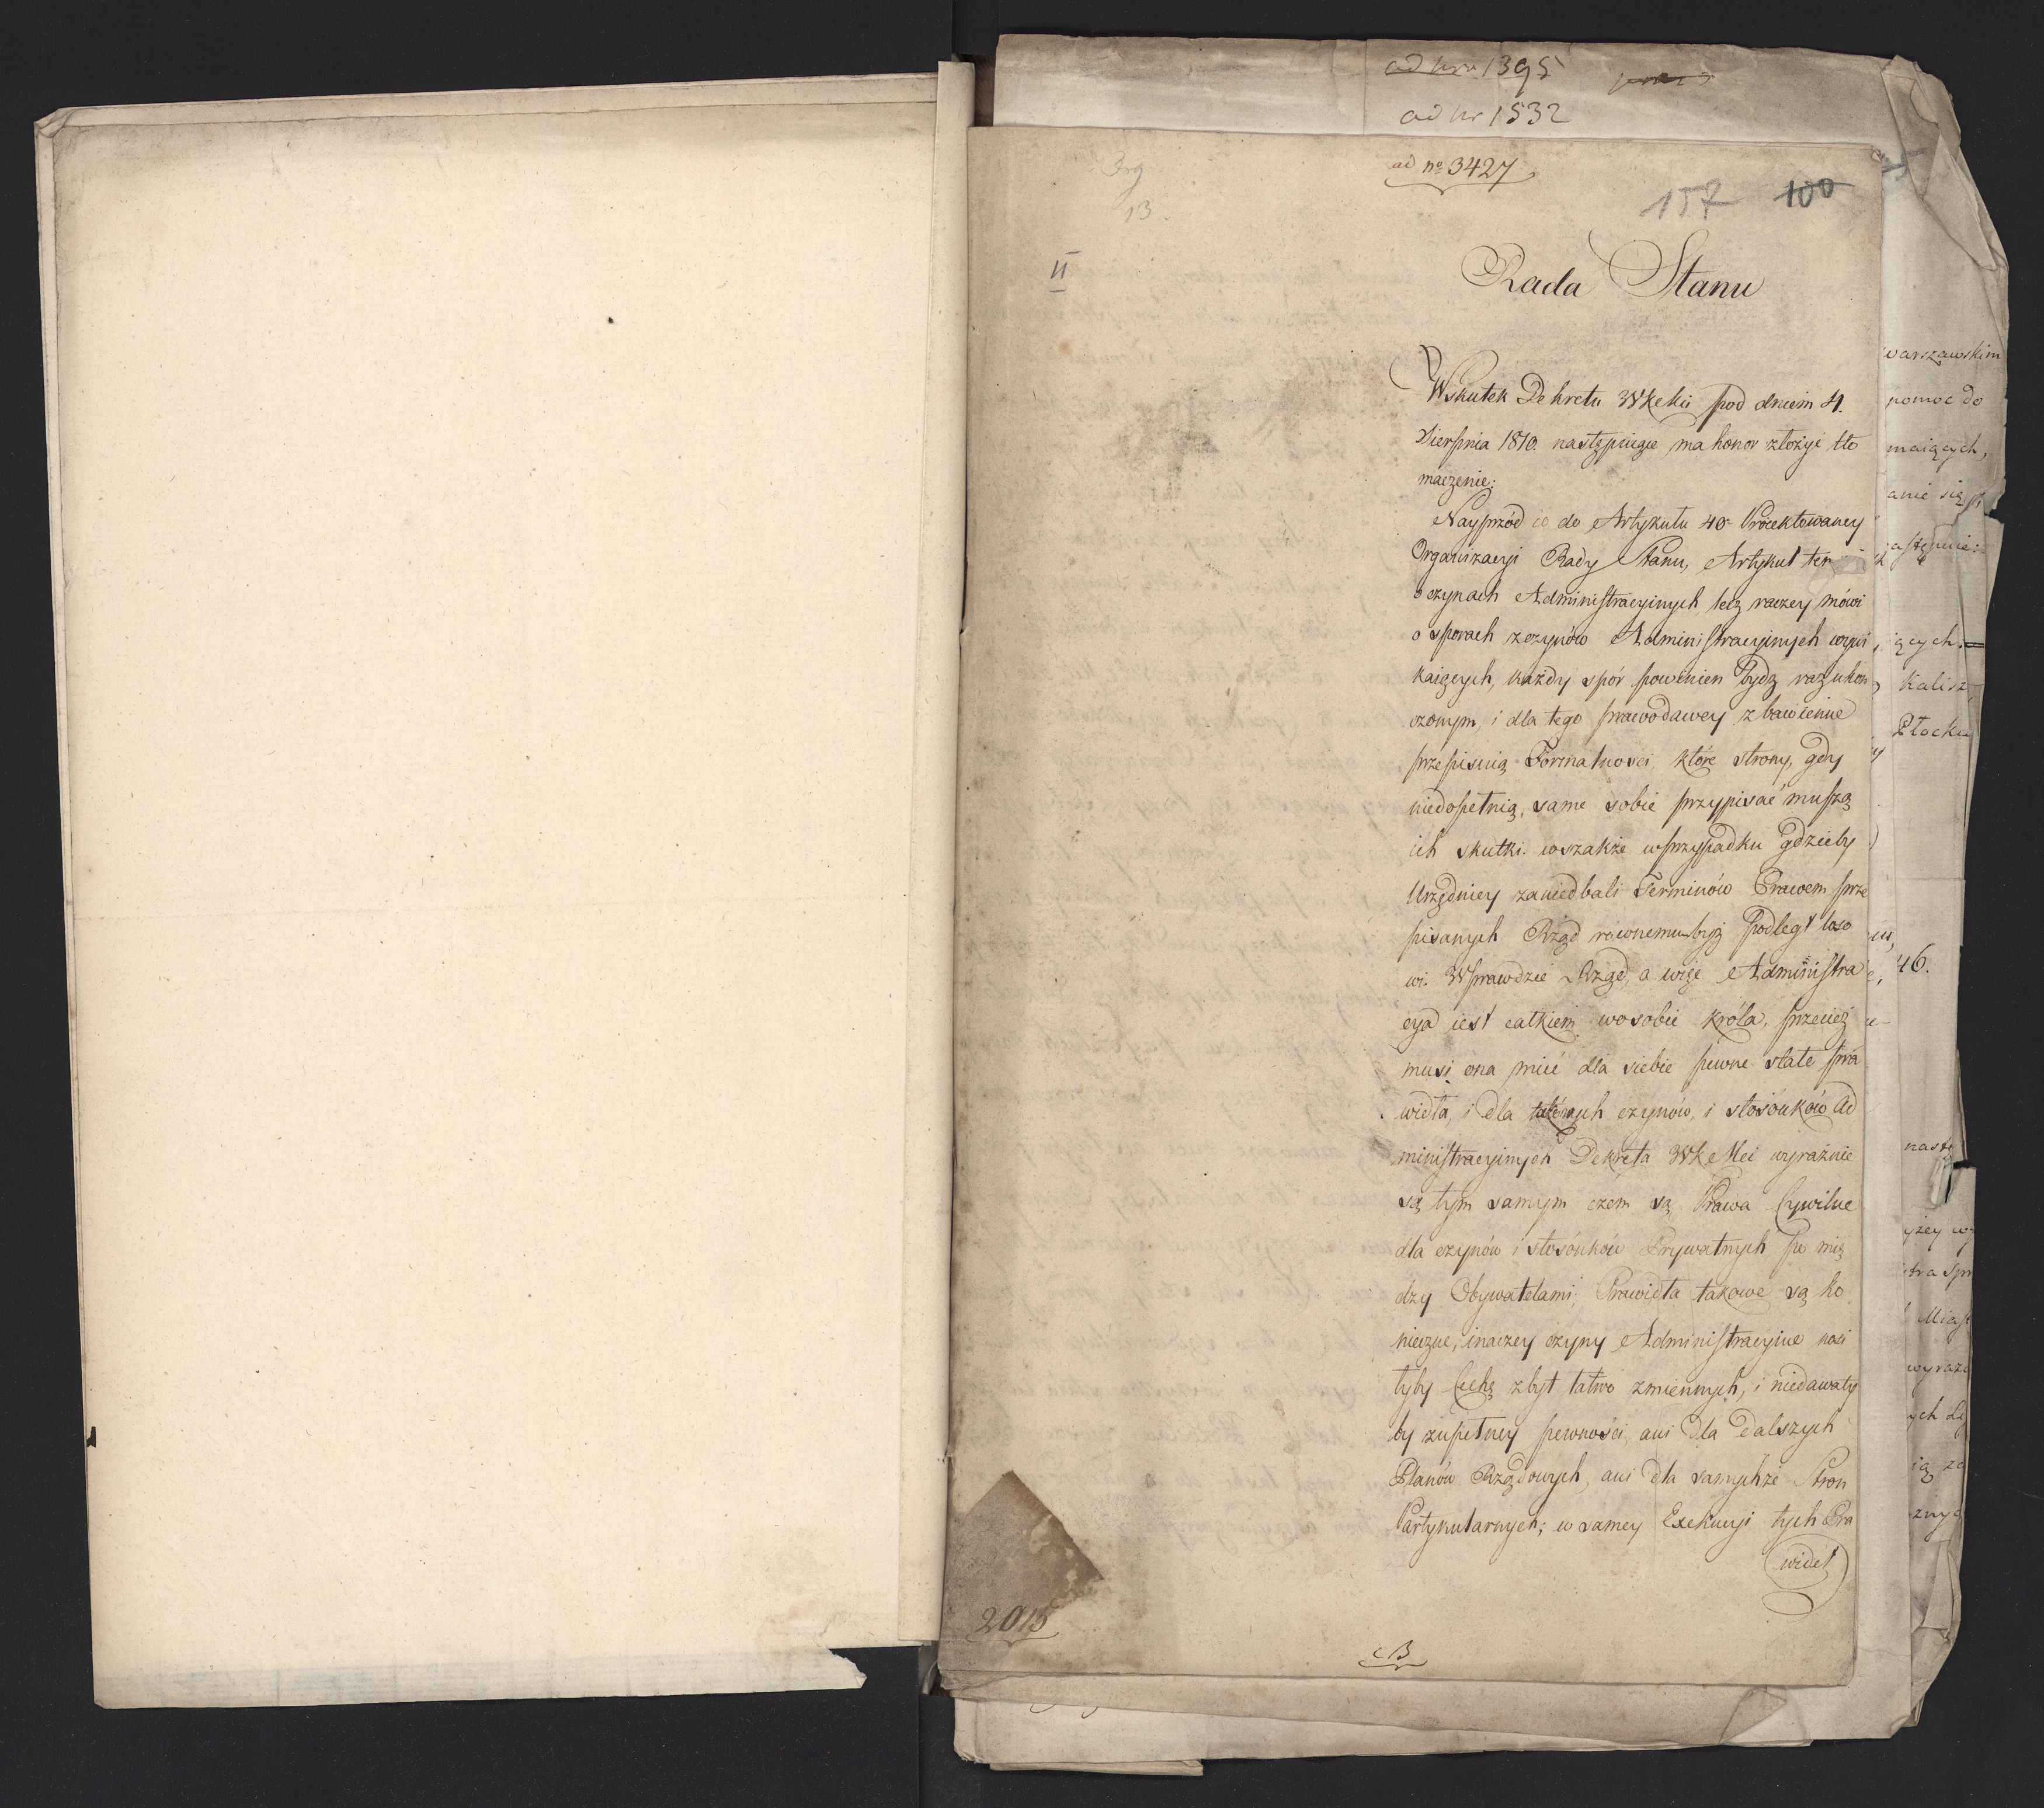 ad Nru 1395
ad Nr 1532
ad no 3427
Org
13
157 100
II
Rada Stanu
Wskutek Dekretu WKMci pod dniem 4.
Sierpnia 1810. następuiące ma honor złożyć tło
maczenie:
Nayprzód co do Artykułu 40o Proiektowaney
Organizacyi Rady Stanu, Artykuł ten
o czynach Administracyinych lecz raczey mówi
o sporach z czynów Administracyinych wyni
kaiących, każdy spór powinien bydz raz ukoń
czonym, i dla tego prawodawcy zbawienne
przepisuią Formalności, które strony, gdy
niedopełnią, same sobie przypisać muszą
ich skutki. wszakże w przypadku gdzieby
Urzędnicy zaniedbali Terminów Prawem prze
pisanych Rząd równemu by podległ loso
wi. Wprawdzie Rząd, a więc Administra
cya iest całkiem w osobie Króla, przecież
musi ona mieć dla siebie pewne stałe pra
widła, i dla których czynów, i stosunków Ad
ministracyinych Dekreta WKMci wyraźnie
są tym samym czém są Prawa Cywilne
dla czynów i stosunków Prywatnych po mię
dzy Obywatelami; Prawidła takowe są ko
nieczne, inaczey czyny Administracyine nosi
łyby Cechę zbyt łatwo zmiennych, i niedawały
by zupełney pewności, ani dla dalszych
Planów Rządowych, ani dla samychże Stron
Partykularnych; w samey Exekucyi tych Pra
wideł
2015
B
warszawskim
pomoc do
maiących,
anie się
astępnie:
ących.
Kalisz,
Płocku
46.
nastę
yżey wy
tra Spr
Miast
wyraź
ych
ią za
znych